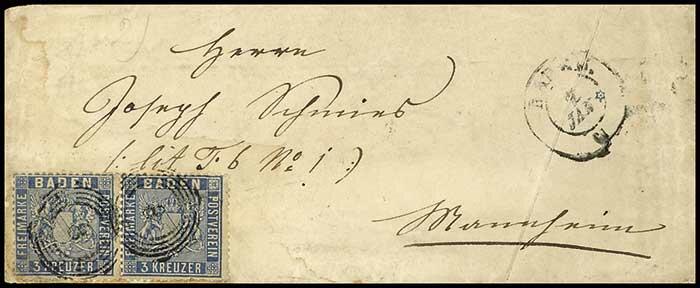 Herrn
Joseph Schmies
(: lit T. 6 No 1 :)
Mannheim
JAN
BADEN
FREIMARKE
POSTVEREIN
3 KREUZER
BADEN
FREIMARKE
POSTVEREIN
3 KREUZER